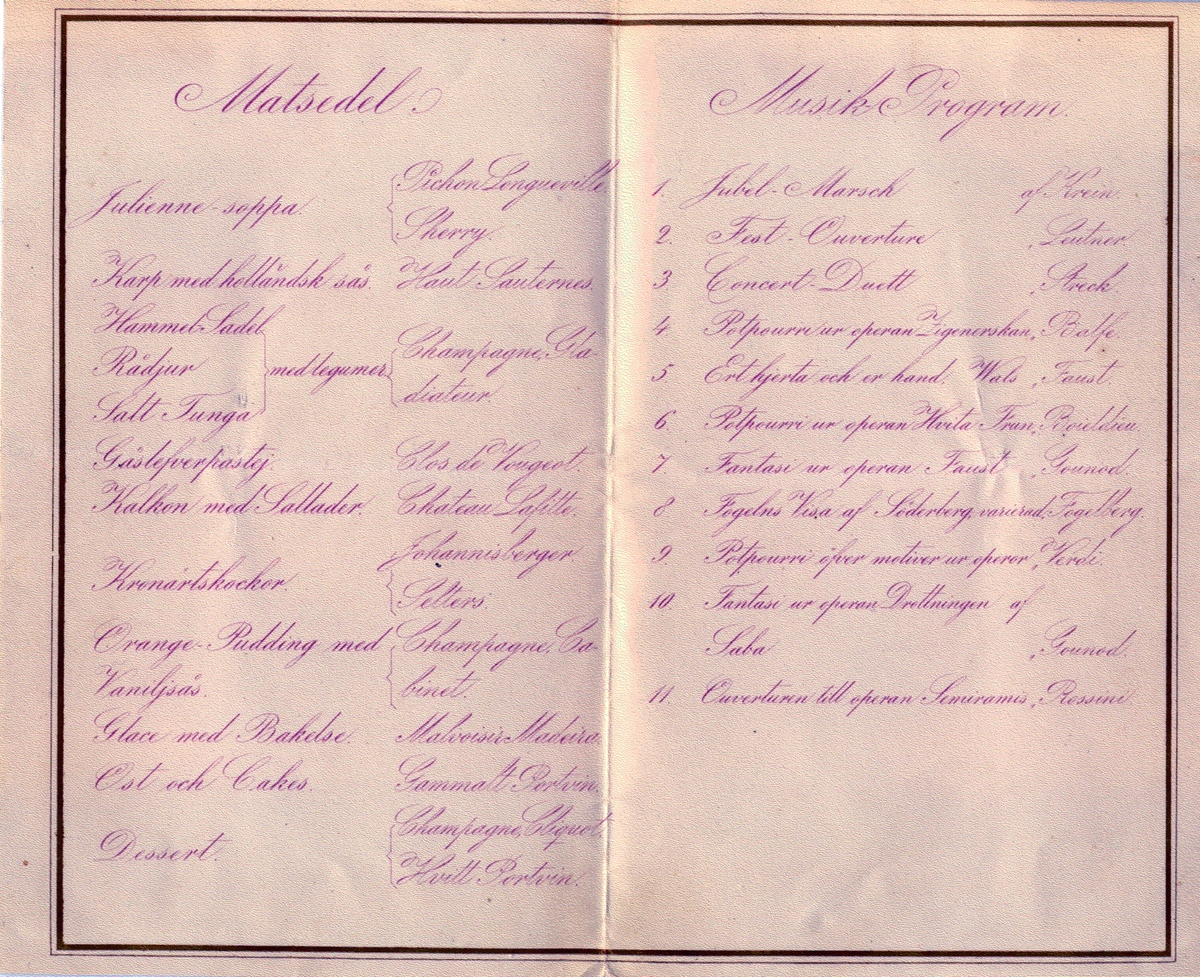 Matsedel.
Julienne-soppa. Pichon Longueville.
Sherry.
Karp med holländsk sås. Haut Sauternes.
Hammel-Sadel
Rådjur med legumer Champagne, Gla-
diateur.
Salt Tunga
Gåslefverpastej. Clos de Vougeot.
Kalkon med Sallader. Chateau Lafitte.
Kronärtskockor. Johannisberger
Selters.
Orange-Pudding med Champagne, Ca-
Vaniljsås. binet.
Glace med Bakelse. Malvoisir Madeira.
Ost och Cakes. Gammalt Portvin.
Dessert. Champagne, Cliquot.
Hvitt Portvin.
Musik-Program.
1. Jubel-Marsch af Krein.
2. Fest-Ouverture „ Leutner.
3. Concert-Duett „ Streck.
4. Potpourri ur operan Zigenerskan, „ Balfe.
5. Ert hjerta och er hand, Wals „ Faust.
6. Potpourri ur operan Hvita Frun, „ Boieldieu.
7. Fantasi ur operan Faust „ Gounod.
8. Fogelns Visa af Söderberg, varierad „ Fogelberg.
9. Potpourri öfver motiver ur operor „ Verdi.
10. Fantasi ur operan Drottningen af
Saba „ Gounod.
11. Ouverturen till operan Semiramis „ Rossini.